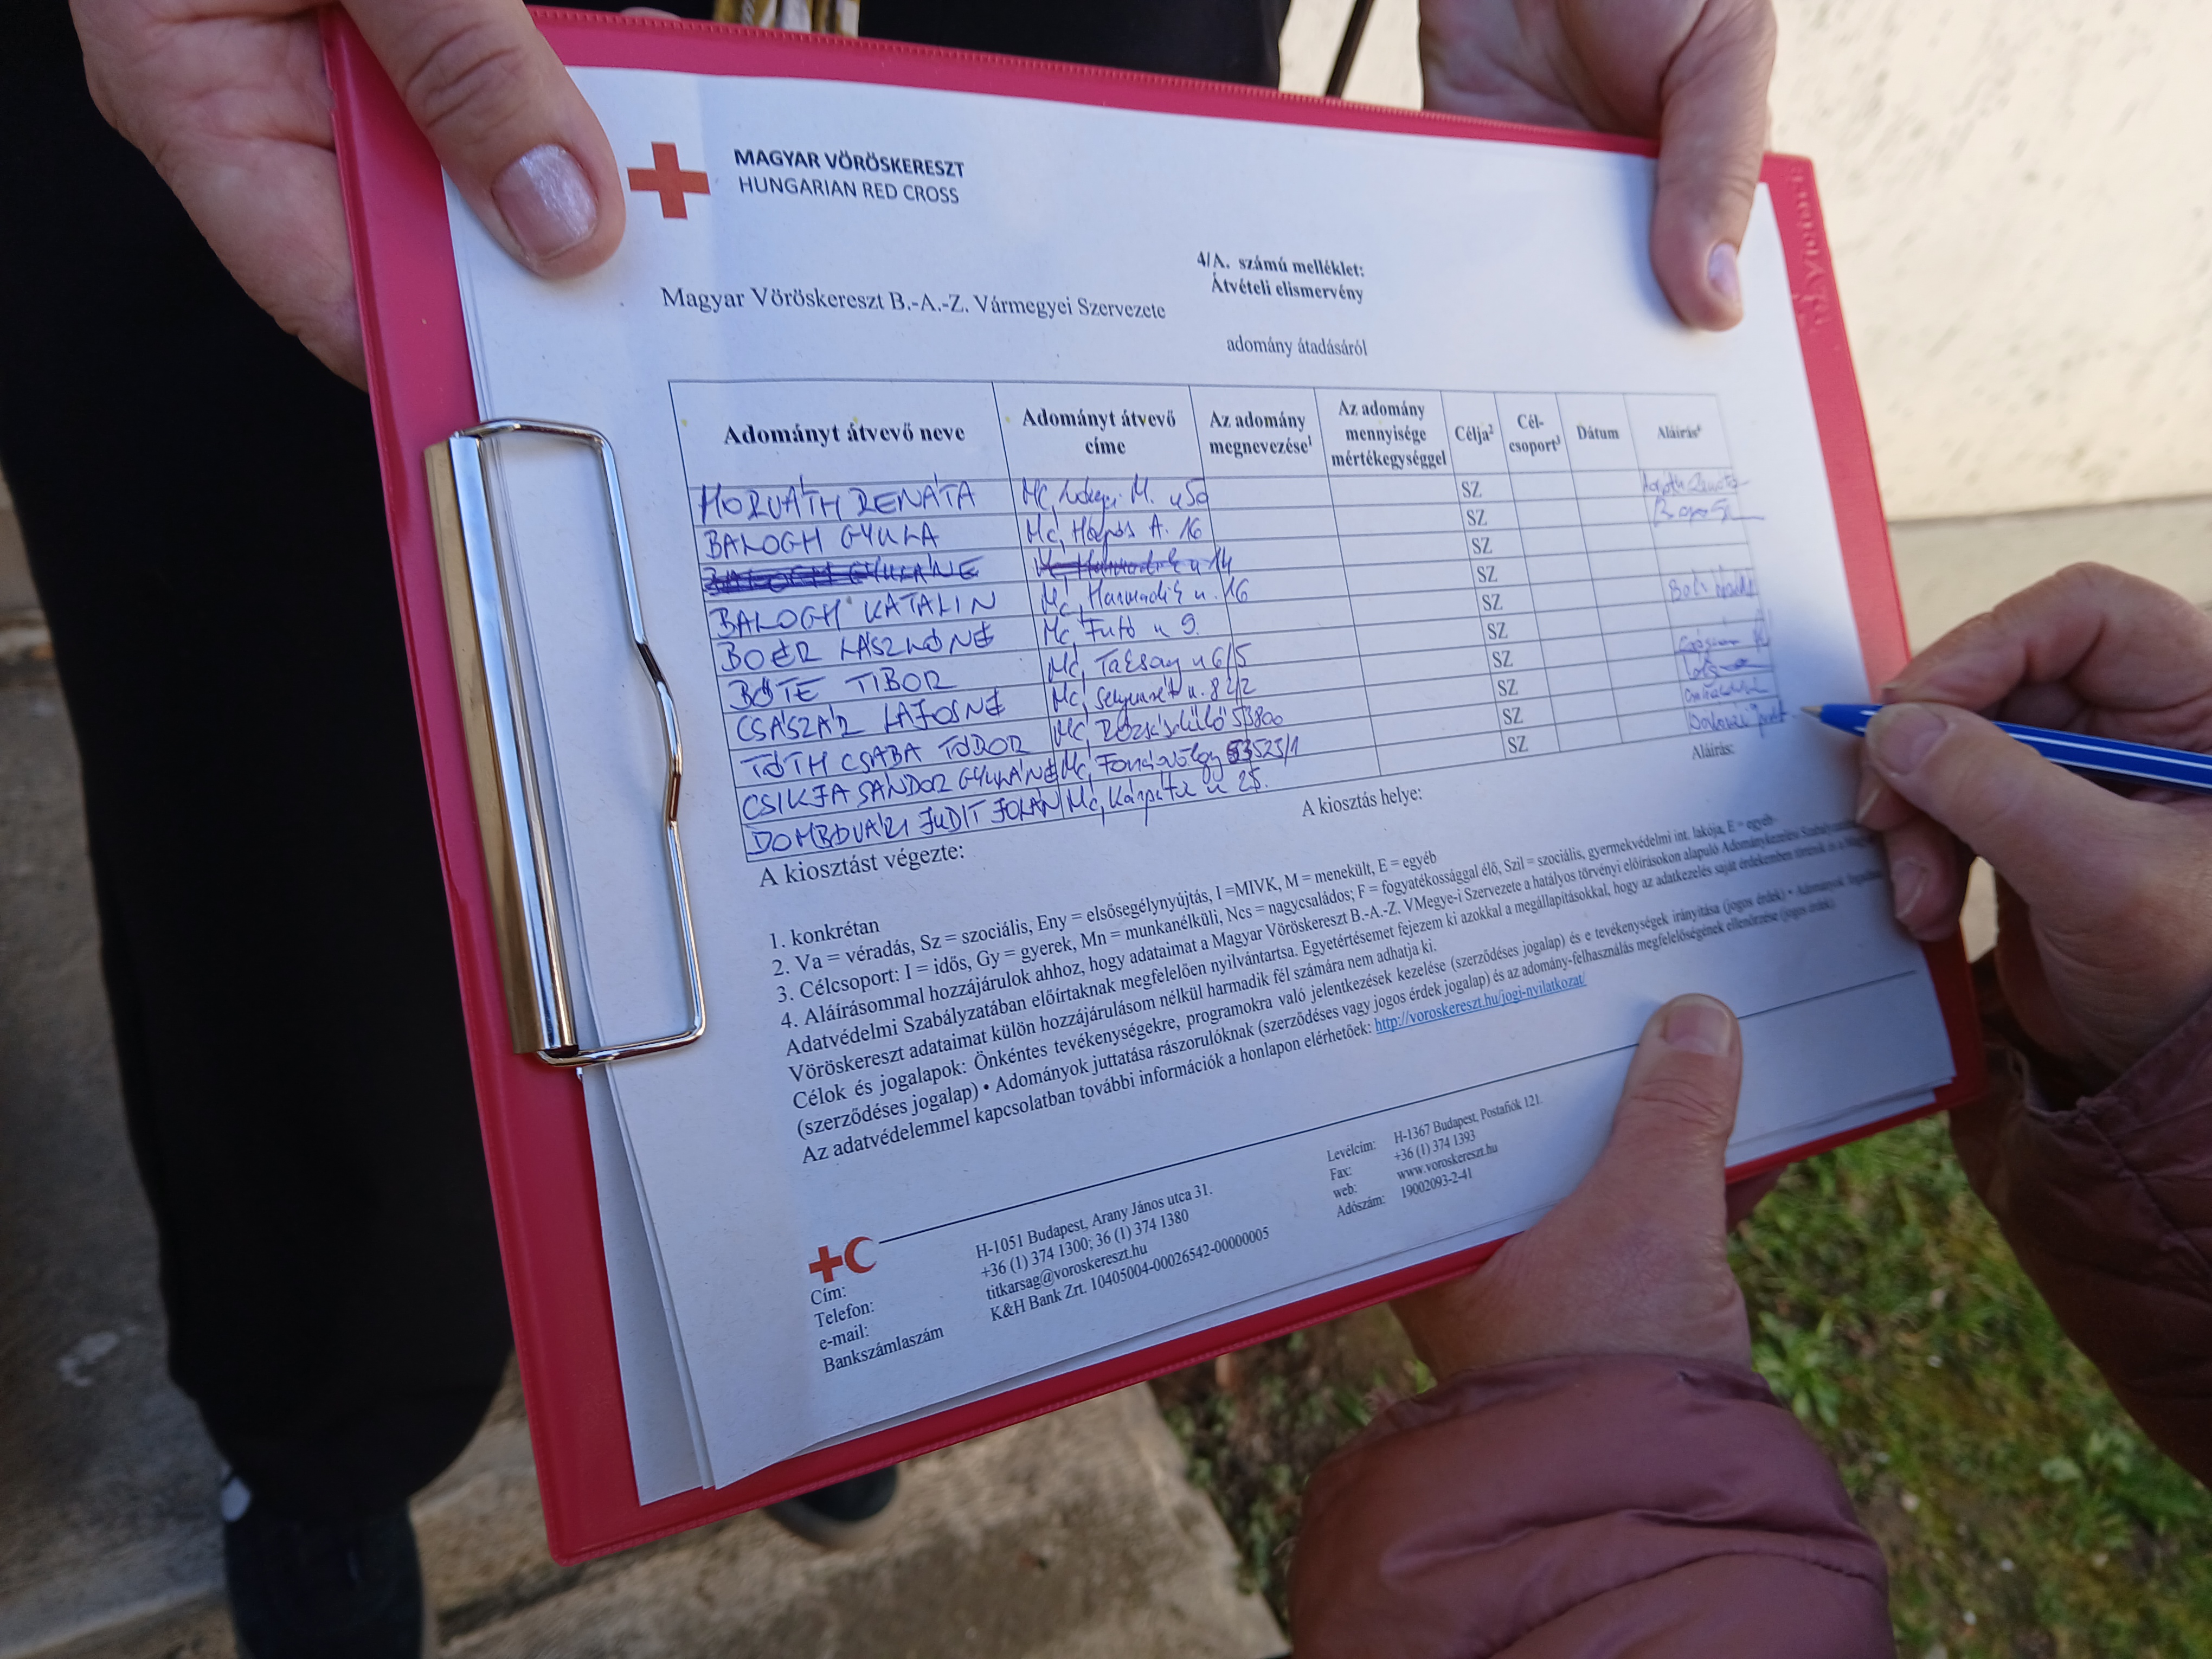 MAGYAR VÖRÖSKERESZT
HUNGARIAN RED CROSS
4/A. számú melléklet:
Átvételi elismervény
Magyar Vöröskereszt B.-A.-Z. Vármegyei Szervezete
adomány átadásáról
Adományt átvevő neve Adományt átvevő címe Az adomány megnevezése¹ Az adomány mennyisége mértékegységgel Célja² Cél-csoport³ Dátum Aláírás⁴
HORVÁTH RENÁTA Mc, M. u 50 SZ
BALOGH GYULA Mc, A. 16 SZ
BALOGH GYULÁNÉ Mc, u 14 SZ
BALOGH KATALIN Mc, Harmadik u. 16 SZ
BOÉR LÁSZLÓNÉ Mc, Futó u 9. SZ
BŐTE TIBOR Mc, u 6/5 SZ
CSÁSZÁR LAJOSNÉ Mc, Selyemrét u. 8 2/2 SZ
TÓTH CSABA TÓDOR Mc, 53800 SZ
CSIKJA SÁNDOR GYULÁNÉ Mc, 53525/1 SZ
DOMBOVÁRI JUDIT JOLÁN Mc, Kárpáti u 25. SZ
A kiosztást végezte: A kiosztás helye: Aláírás:
1. konkrétan
2. Va = véradás, Sz = szociális, Eny = elsősegélynyújtás, I =MIVK, M = menekült, E = egyéb
3. Célcsoport: I = idős, Gy = gyerek, Mn = munkanélküli, Ncs = nagycsaládos; F = fogyatékossággal élő, Szil = szociális, gyermekvédelmi int. lakója, E = egyéb
4. Aláírásommal hozzájárulok ahhoz, hogy adataimat a Magyar Vöröskereszt B.-A.-Z. VMegye-i Szervezete a hatályos törvényi előírásokon alapuló Adománykezelési
Adatvédelmi Szabályzatában előírtaknak megfelelően nyilvántartsa. Egyetértésemet fejezem ki azokkal a megállapításokkal, hogy az adatkezelés saját érdekemben történik és a
Vöröskereszt adataimat külön hozzájárulásom nélkül harmadik fél számára nem adhatja ki.
Célok és jogalapok: Önkéntes tevékenységekre, programokra való jelentkezések kezelése (szerződéses jogalap) és e tevékenységek irányítása (jogos érdek) • Adományok
(szerződéses jogalap) • Adományok juttatása rászorulóknak (szerződéses vagy jogos érdek jogalap) és az adomány-felhasználás megfelelőségének ellenőrzése (jogos érdek)
Az adatvédelemmel kapcsolatban további információk a honlapon elérhetőek: http://voroskereszt.hu/jogi-nyilatkozat/
Cím: H-1051 Budapest, Arany János utca 31.
Telefon: +36 (1) 374 1300; 36 (1) 374 1380
e-mail: titkarsag@voroskereszt.hu
Bankszámlaszám K&H Bank Zrt. 10405004-00026542-00000005
Levélcím: H-1367 Budapest, Postafiók 121.
Fax: +36 (1) 374 1393
web: www.voroskereszt.hu
Adószám: 19002093-2-41